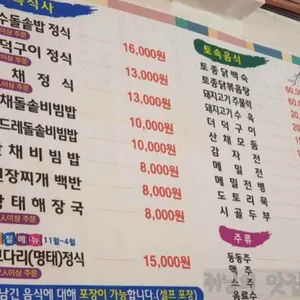 식사
수돌솥밥 정식
16,000원
이상 주문
더덕구이 정식
13,000원
이상 주문
채 정 식
13,000원
이상 주문
채돌솥비빔밥
10,000원
드레돌솥비빔밥
10,000원
산 채 비 빔 밥
8,000원
된장찌개 백반
8,000원
황 태 해 장 국
8,000원
계절메뉴 11월~4월
코다리(명태)정식
15,000원
인이상 주문
남긴 음식에 대해 포장이 가능합니다.(셀프 포장)
토속음식
토종닭백숙
토종닭볶음탕
돼지고기 주물럭
돼지고기 수육
더 덕 구 이
산 채 모 듬
감 자 전
메 밀 전
메 밀 전 병
도 토 리 묵
시 골 두 부
주류
동동주
맥 주
소 주
음료수